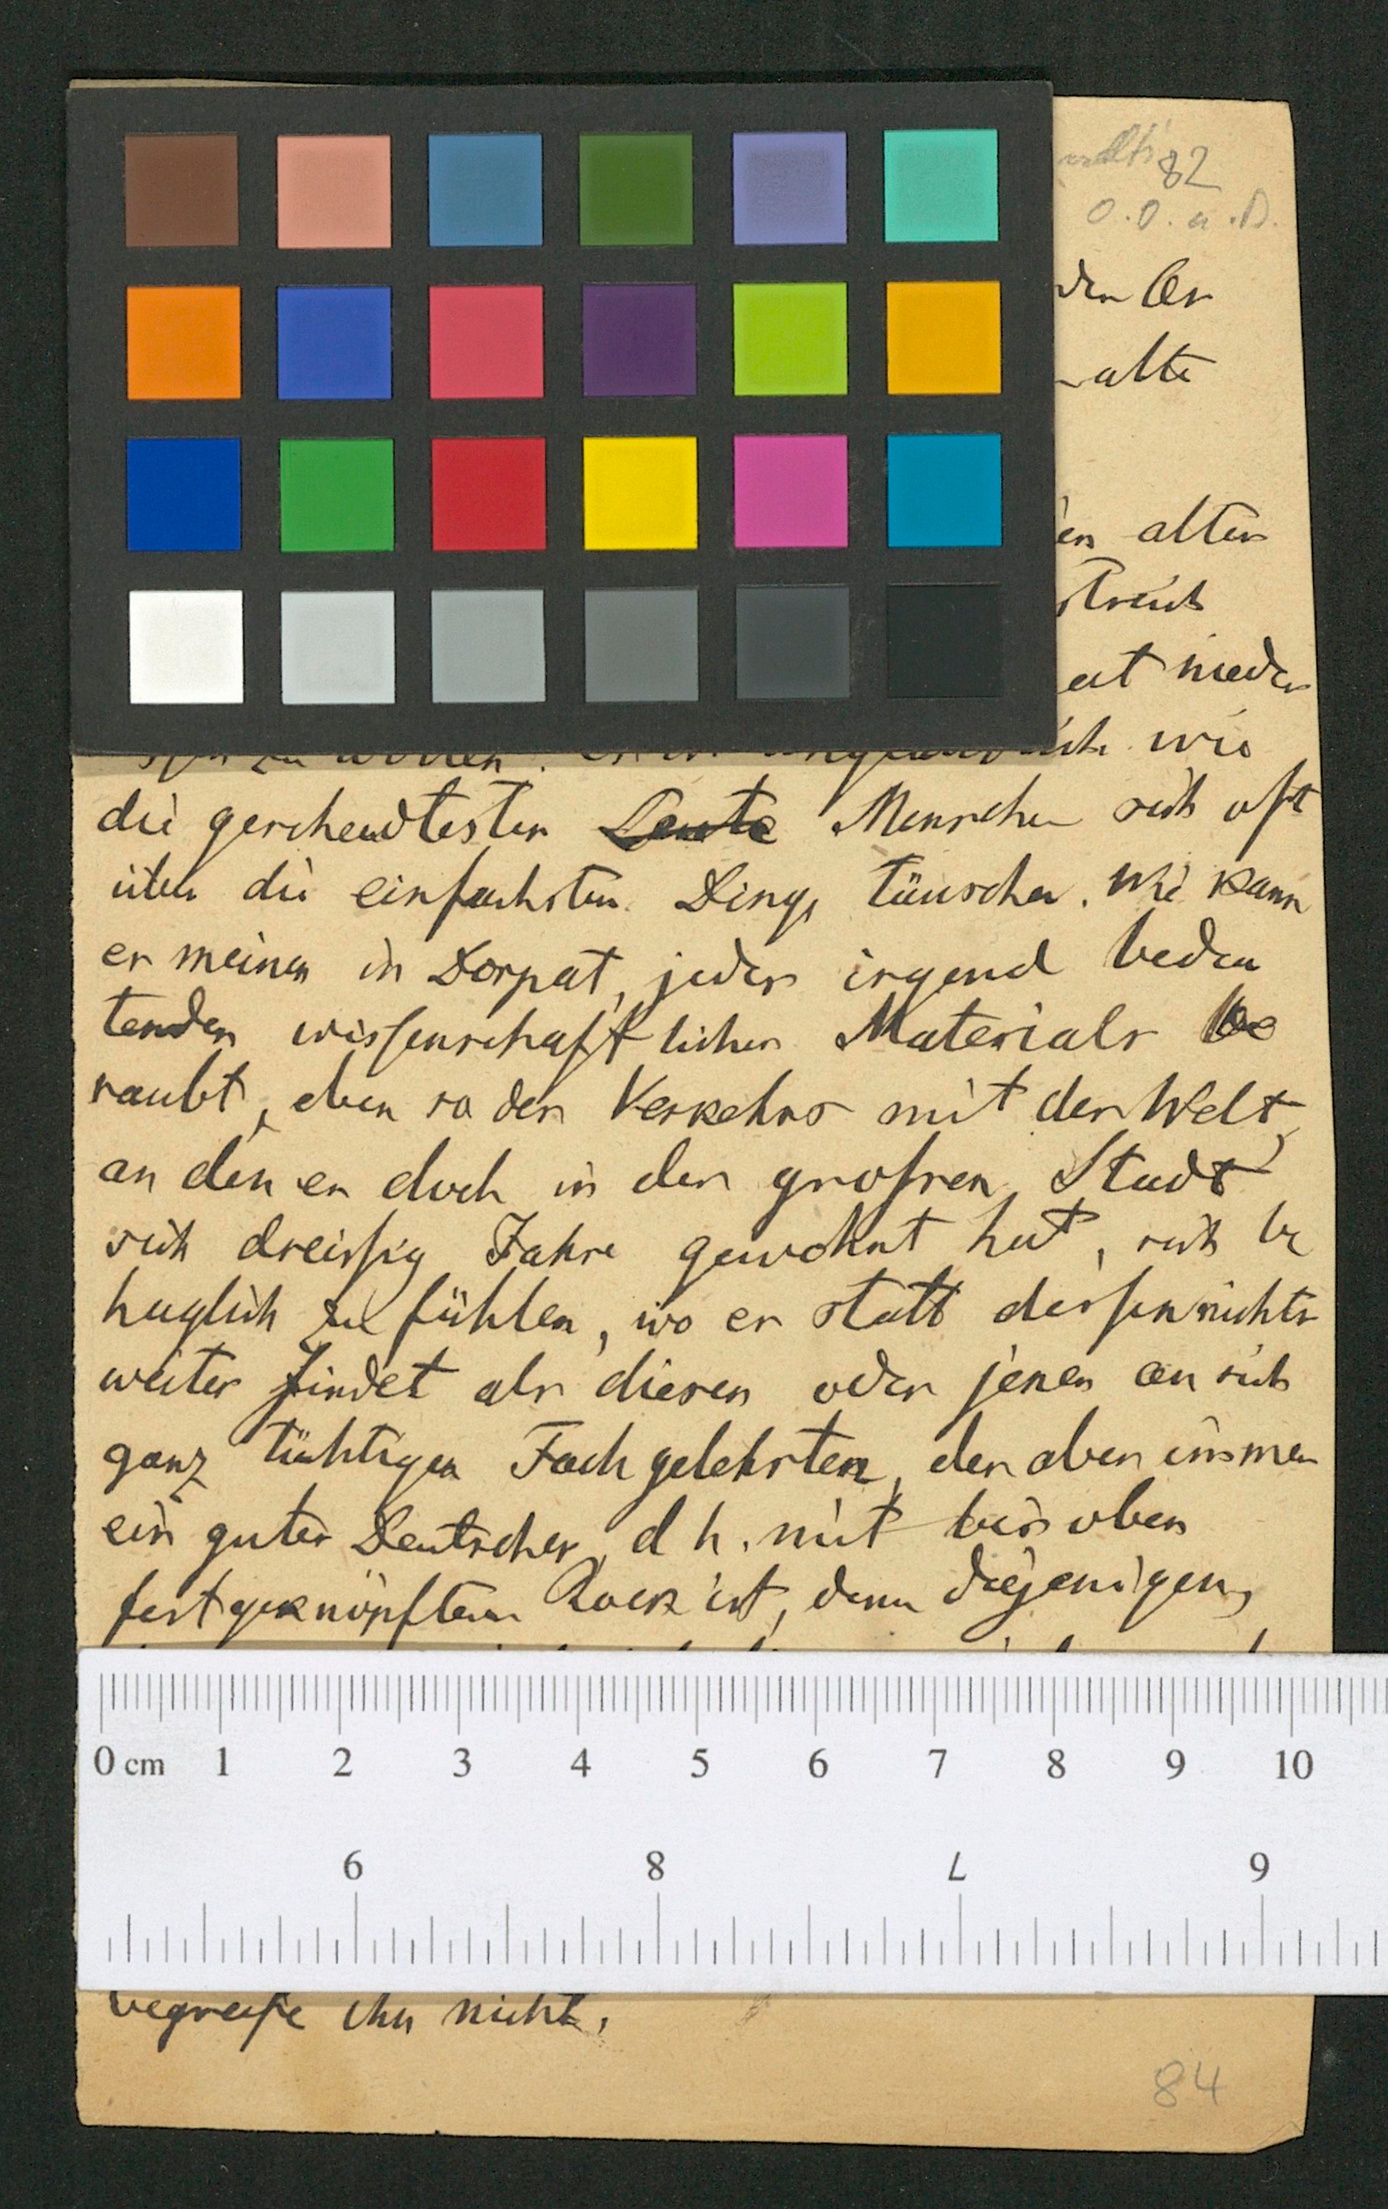 82
o. O. u. D.
den Er
alte
en alter
streich
at nieder
wie
die gescheudtesten Leute Menschen sich oft
über die einfachsten Dinge täuschen. Wie kann
er meinen in Dorpat, jedes irgend bedeu
tenden wissenschaftlichen Materials be
raubt, eben so des Verkehrs mit der Welt,
an den er doch in der grossen Stadt
sich dreissig Jahre gewohnt hat, sich be
haglich zu fühlen, wo er statt dessen nichts
weiter findet als diesen oder jenen an sich
ganz tüchtigen Fachgelehrten, der aber immer
ein guter Deutscher, d h. mit bis oben
festgeknöpftem Rock ist, denn diejenigen,
0 cm 1 2 3 4 5 6 7 8 9 10
6 8 7 9
begreife ihn nicht.
84